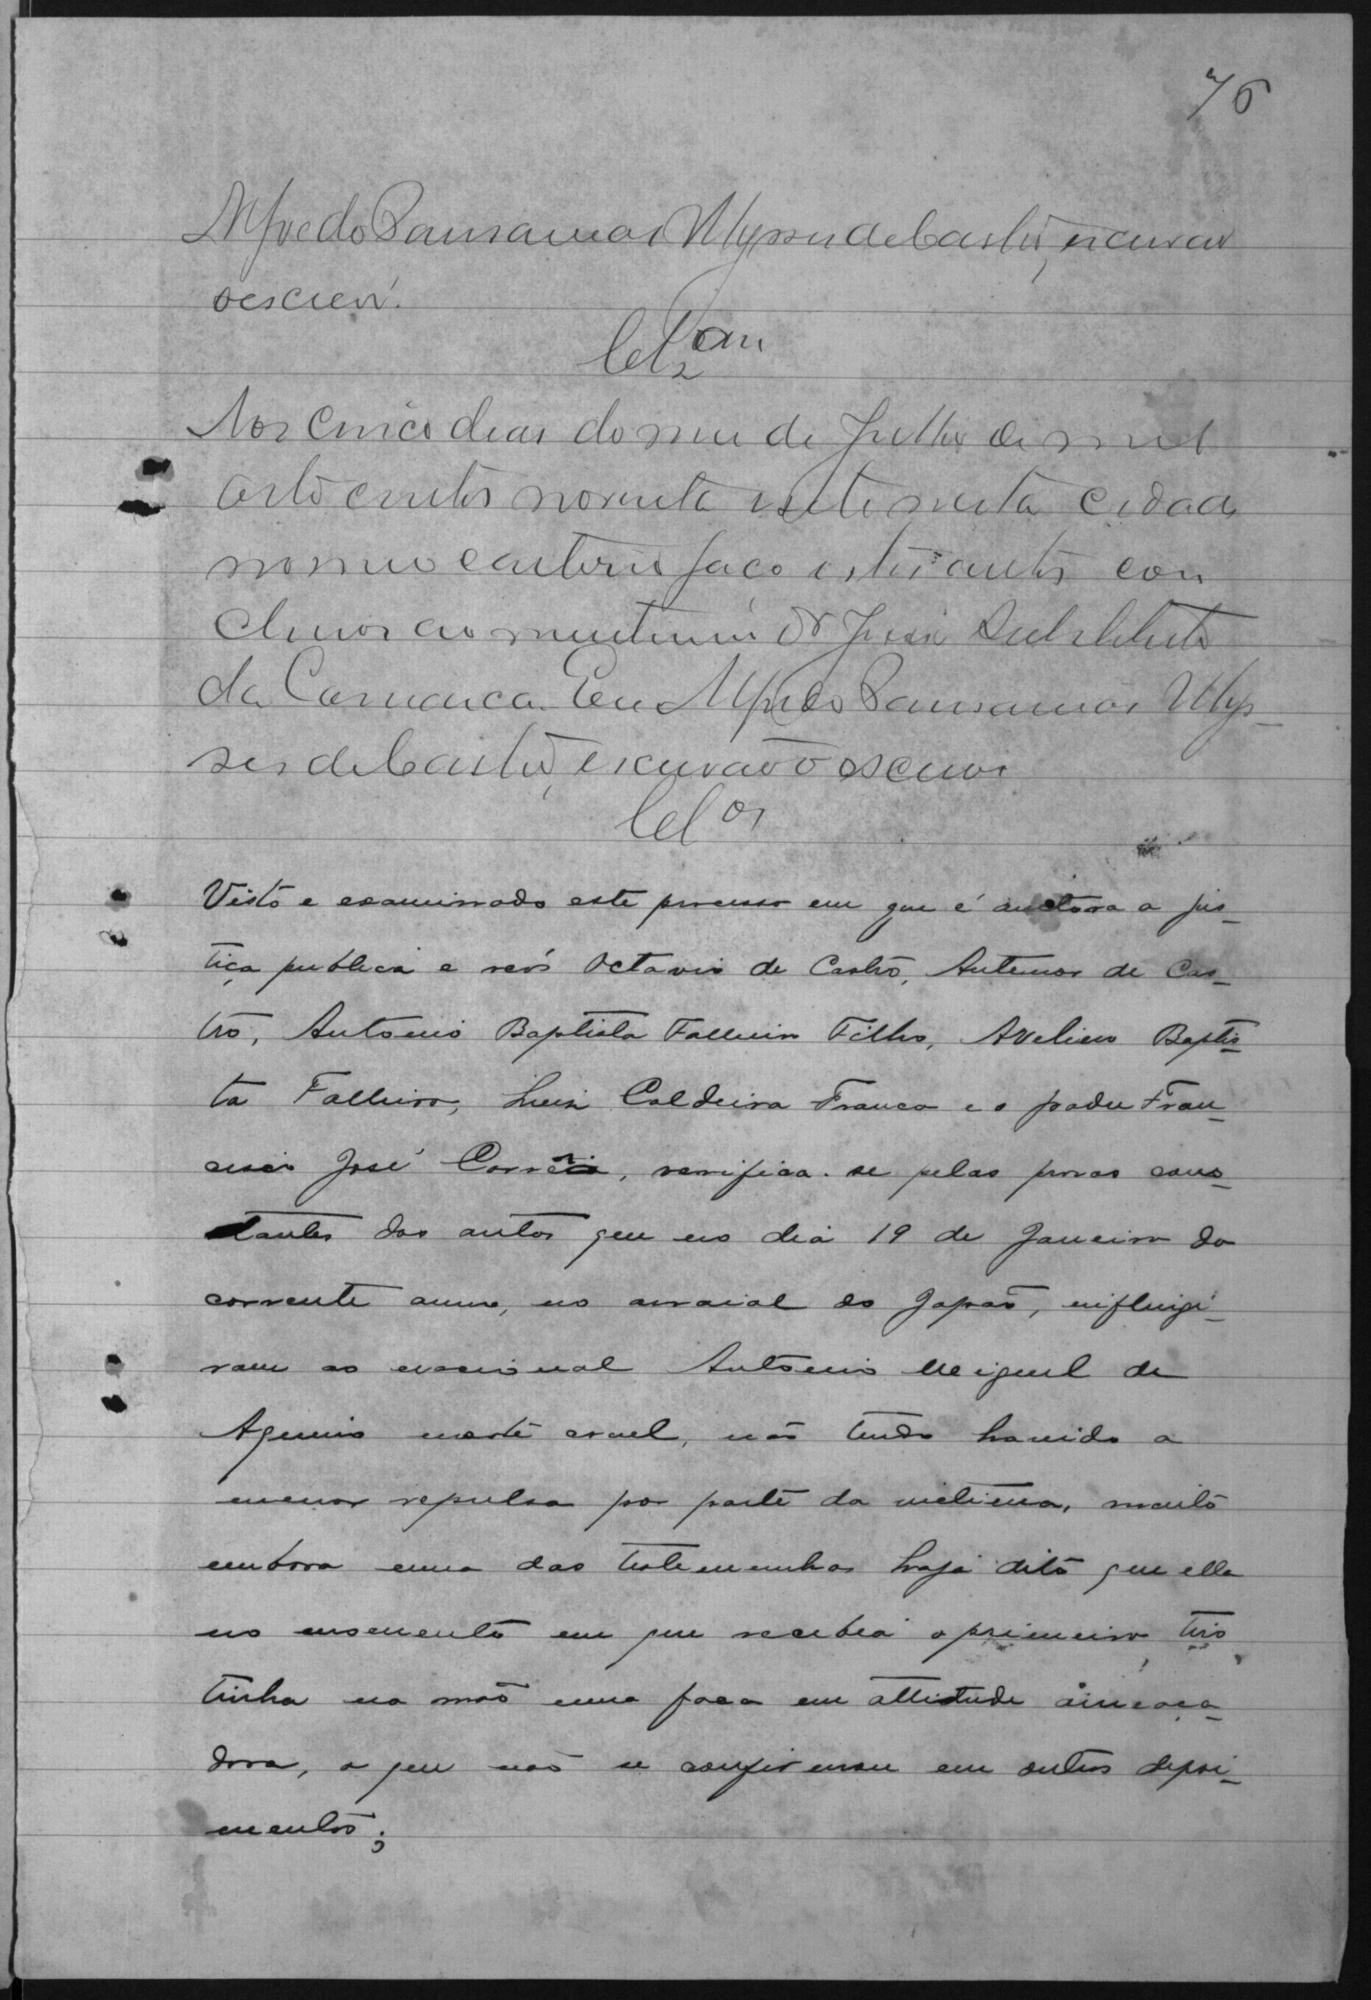 76
Alfredo Pausanias Ulysses de Castro, escrivão
o escrevi.
Clzam
Aos cinco dias do mez de Julho de mil
oito centos noventa e sete nesta cidade
no meu cartorio faço estes autos con
clusos ao meretissimo Dr Juis Substituto
da Comarca. Eu Alfredo Pausanias Ulys-
ses de Castro, escrivão o escrevi
Clos
Visto e examinado este processo em que é auctora a jus-
tiça publica e reos Octavio de Castro, Antenor de Cas-
tro, Antonio Baptista Falleiro Filho, Avelino Baptis-
ta Falleiro, Luiz Caldeira Franco e o padre Fran-
cisco José Corrêa, verifica-se pelas provas cons-
tantes dos autos que no dia 19 de Janeiro do
corrente anno, no arraial do Japão, infligi-
ram ao nacional Antonio Miguel de
morte cruel, não tendo havido a
menor repulsa por parte da victima, muito
embora uma das testemunhas haja dito que ella
no momento em que recebia o primeiro tiro,
tinha na mão uma faca em attitude ameaça-
dora, o que não se confirmou em outros depoi-
mentos;